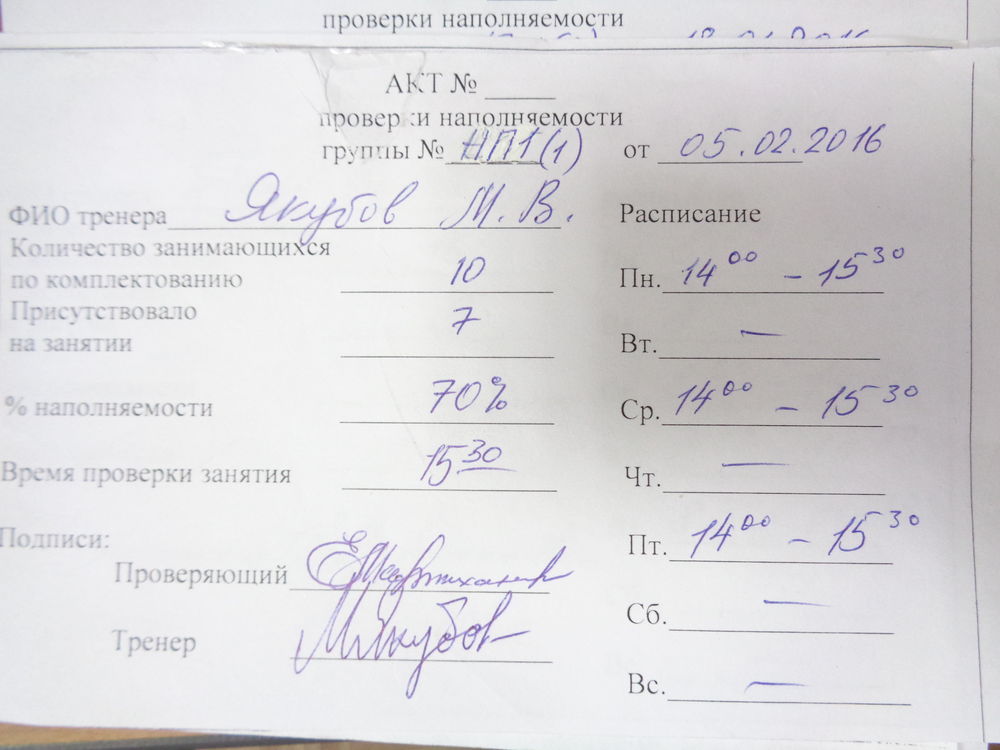 проверки наполняемости
АКТ № ____
проверки наполняемости
группы № НП1(1) от 05.02.2016
ФИО тренера Якубов М. В.
Расписание
Количество занимающихся
по комплектованию 10
Пн. 14 00 – 15 30
Присутствовало
на занятии 7
Вт. —
% наполняемости 70%
Ср. 14 00 – 15 30
Время проверки занятия 15 30
Чт. —
Подписи:
Пт. 14 00 – 15 30
Проверяющий
Сб. —
Тренер Якубов
Вс. —